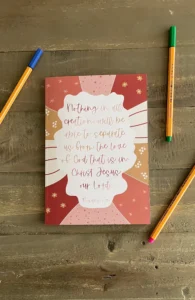 Nothing in all
creation will be
able to separate
us from the love
of God that is in
Christ Jesus
our Lord